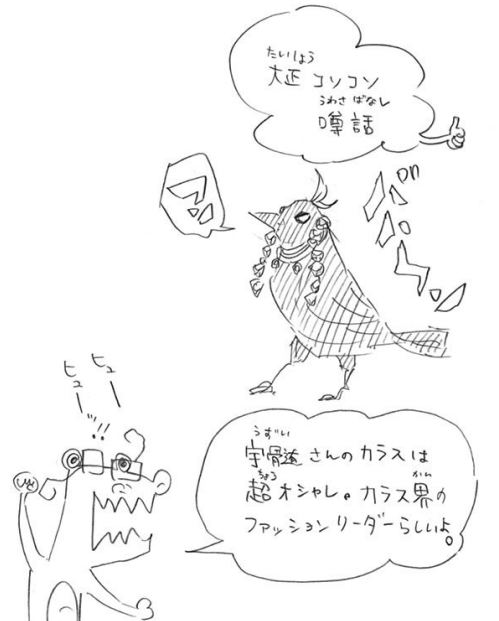 たいしょう
大正コソコソ
うわさばなし
噂話
うずい
宇髄さんのカラスは
ちょう かい
超オシャレ。カラス界の
ファッションリーダーらしいよ。
ヒュー ヒュー